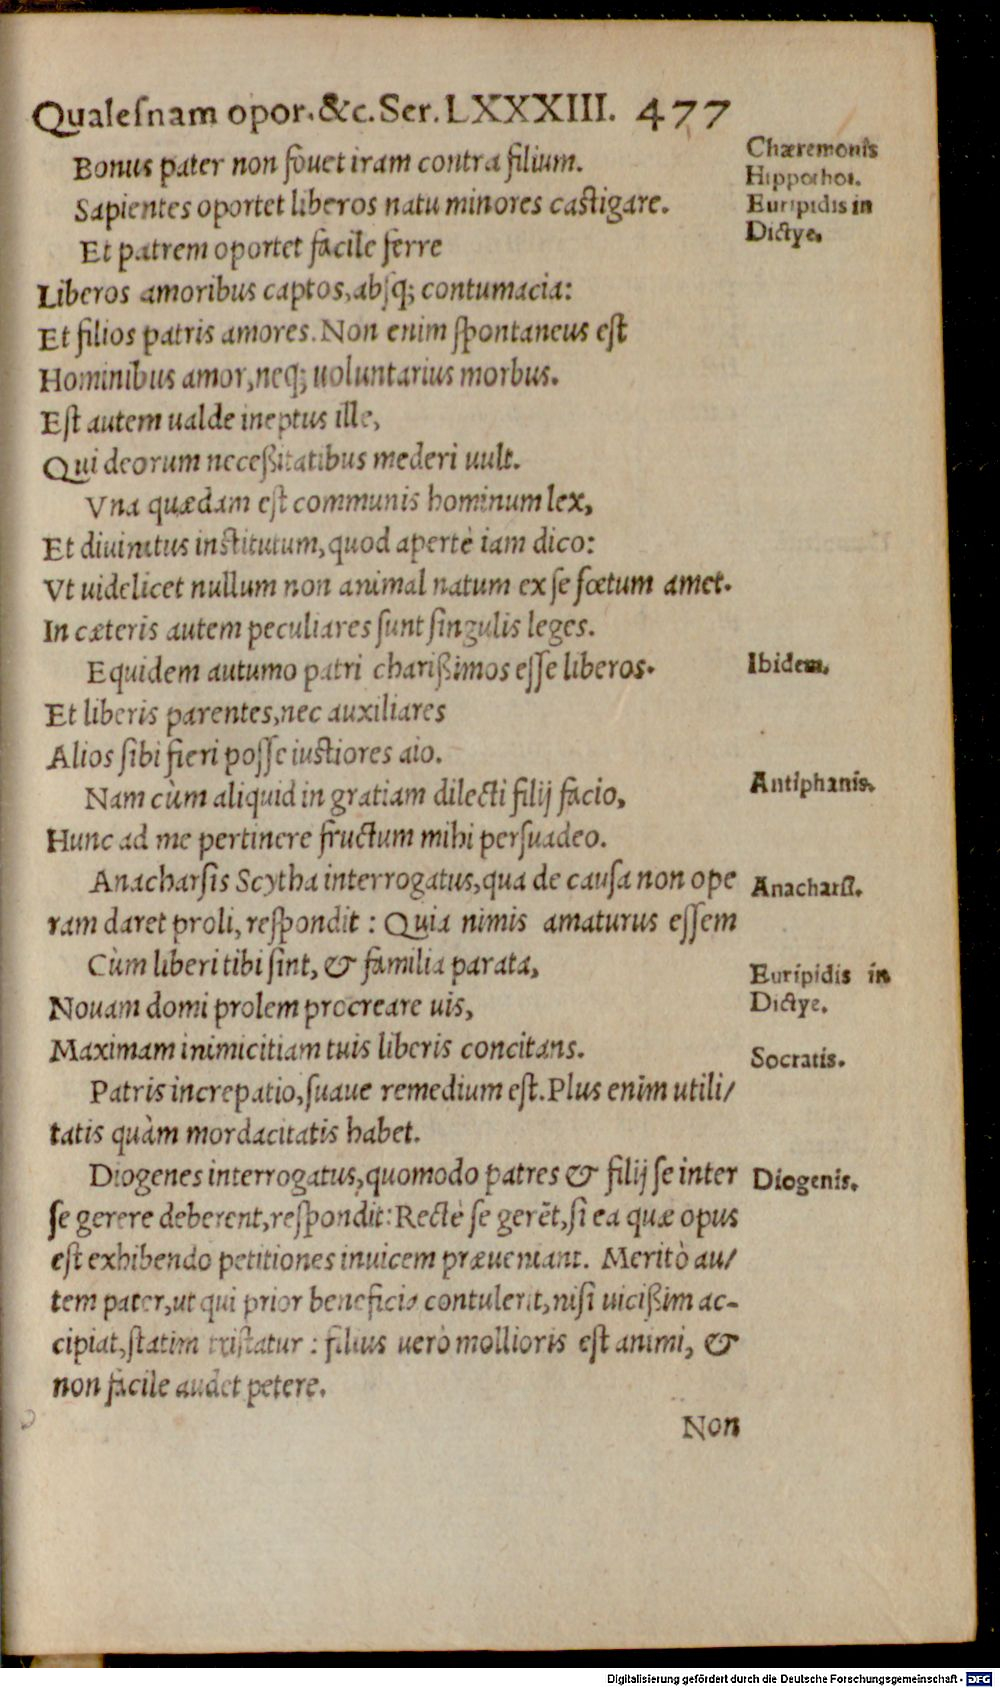 Qualeſnam opor.&c.Ser.LXXXIII. 477
Bonus pater non fouet iram contra filium.
Chæremonis
Sapientes oportet liberos natu minores caſtigare.
Hippothoi.
Et patrem oportet facile ferre
Euripidis in
Dictye.
Liberos amoribus captos,abſq; contumacia:
Et filios patris amores. Non enim ſpontaneus eſt
Hominibus amor,neq; uoluntarius morbus.
Eſt autem ualde ineptus ille,
Qui deorum neceßitatibus mederi uult.
Vna quædam eſt communis hominum lex,
Et diuinitus inſtitutum,quod apertè iam dico:
Vt uidelicet nullum non animal natum ex ſe fœtum amet.
In cæteris autem peculiares ſunt ſingulis leges.
Equidem autumo patri charißimos eſſe liberos.
Ibidem.
Et liberis parentes,nec auxiliares
Alios ſibi fieri poſſe iuſtiores aio.
Nam cùm aliquid in gratiam dilecti filij facio,
Antiphanis.
Hunc ad me pertinere fructum mihi perſuadeo.
Anacharſis Scytha interrogatus,qua de cauſa non ope
Anacharſ.
ram daret proli, reſpondit : Quia nimis amaturus eſſem
Cùm liberi tibi ſint, & familia parata,
Euripidis in
Nouam domi prolem procreare uis,
Dictye.
Maximam inimicitiam tuis liberis concitans.
Socratis.
Patris increpatio,ſuaue remedium eſt.Plus enim utili/
tatis quàm mordacitatis habet.
Diogenes interrogatus,quomodo patres & filij ſe inter
Diogenis.
ſe gerere deberent,reſpondit:Rectè ſe gerẽt,ſi ea quæ opus
eſt exhibendo petitiones inuicem præueniant. Meritò au/
tem pater,ut qui prior beneficia contulerit,niſi uicißim ac-
cipiat,ſtatim triſtatur : filius uerò mollioris eſt animi, &
non facile audet petere.
Non
Digitalisierung gefördert durch die Deutsche Forschungsgemeinschaft - DFG